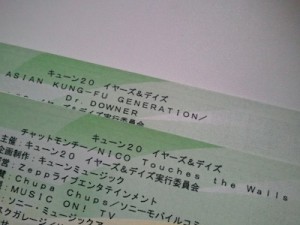 キューン20 イヤーズ&デイズ
ASIAN KUNG-FU GENERATION/
Dr.DOWNER
イヤーズ&デイズ実行委員会
キューン20 イヤーズ&デイズ
チャットモンチー/NICO Touches the Walls
主催:キューン20 イヤーズ&デイズ実行委員会
企画制作:キューンミュージック
Zeppライブエンタテインメント
Chupa Chups/ソニーモバイルコミ
MUSIC ON! TV
ソニー・ミュージックア